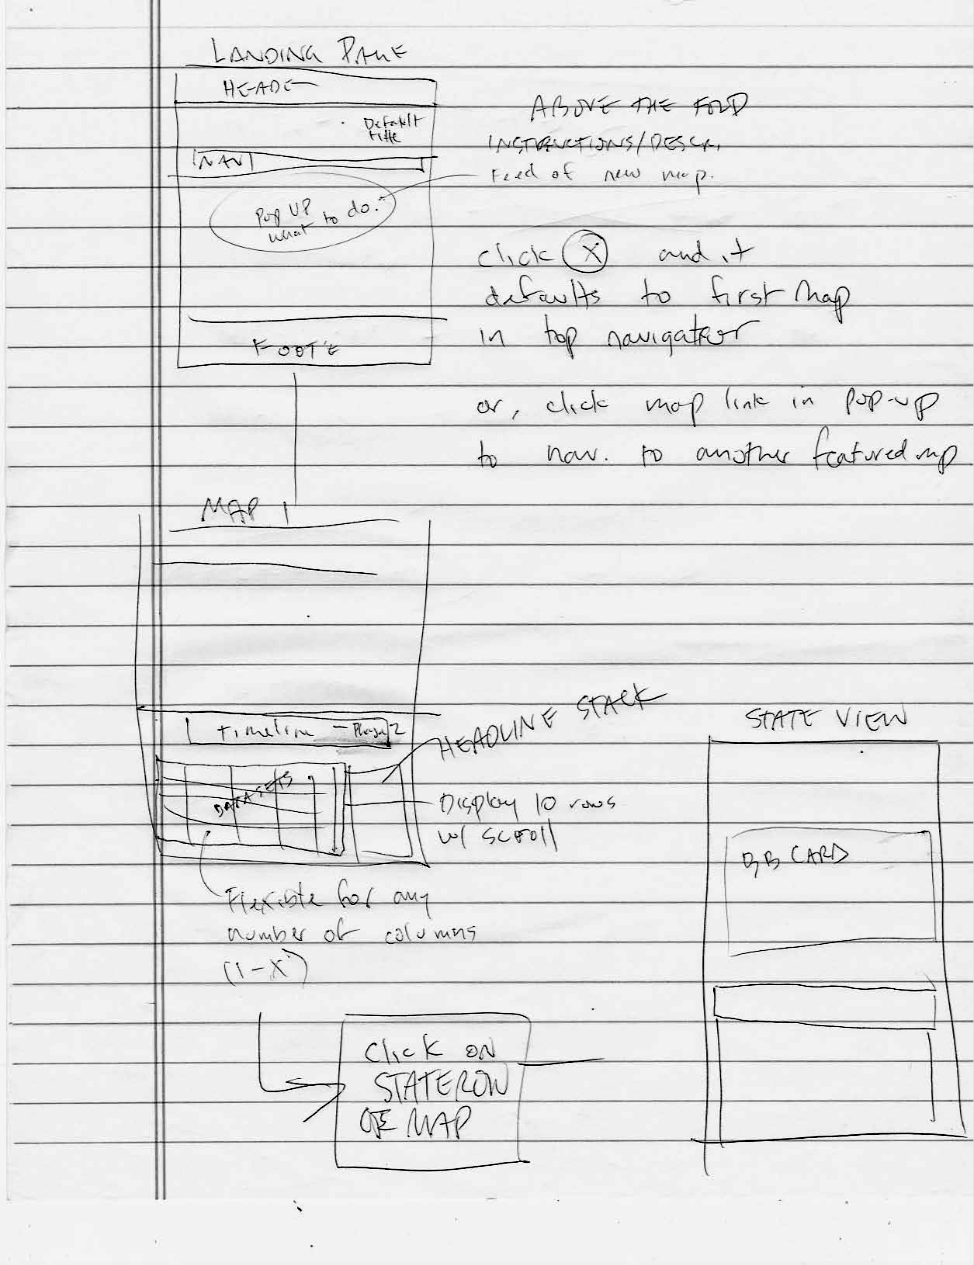 LANDING PAGE
HEADE
Default
title
NAV
POP UP
what to do.
FOOTE
ABOVE THE FOLD
INSTRUCTIONS/DESCR.
Feed of new map.
click X and it
defaults to first map
in top navigator
or, click map link in pop-up
to nav. to another featured mp
MAP 1
timeline - Phase 2
HEADLINE STACK
DATASETS
Display 10 rows
w/ scroll
Flexible for any
number of columns
(1-X)
Click ON
STATE ROW
MAP
STATE VIEW
BB CARD